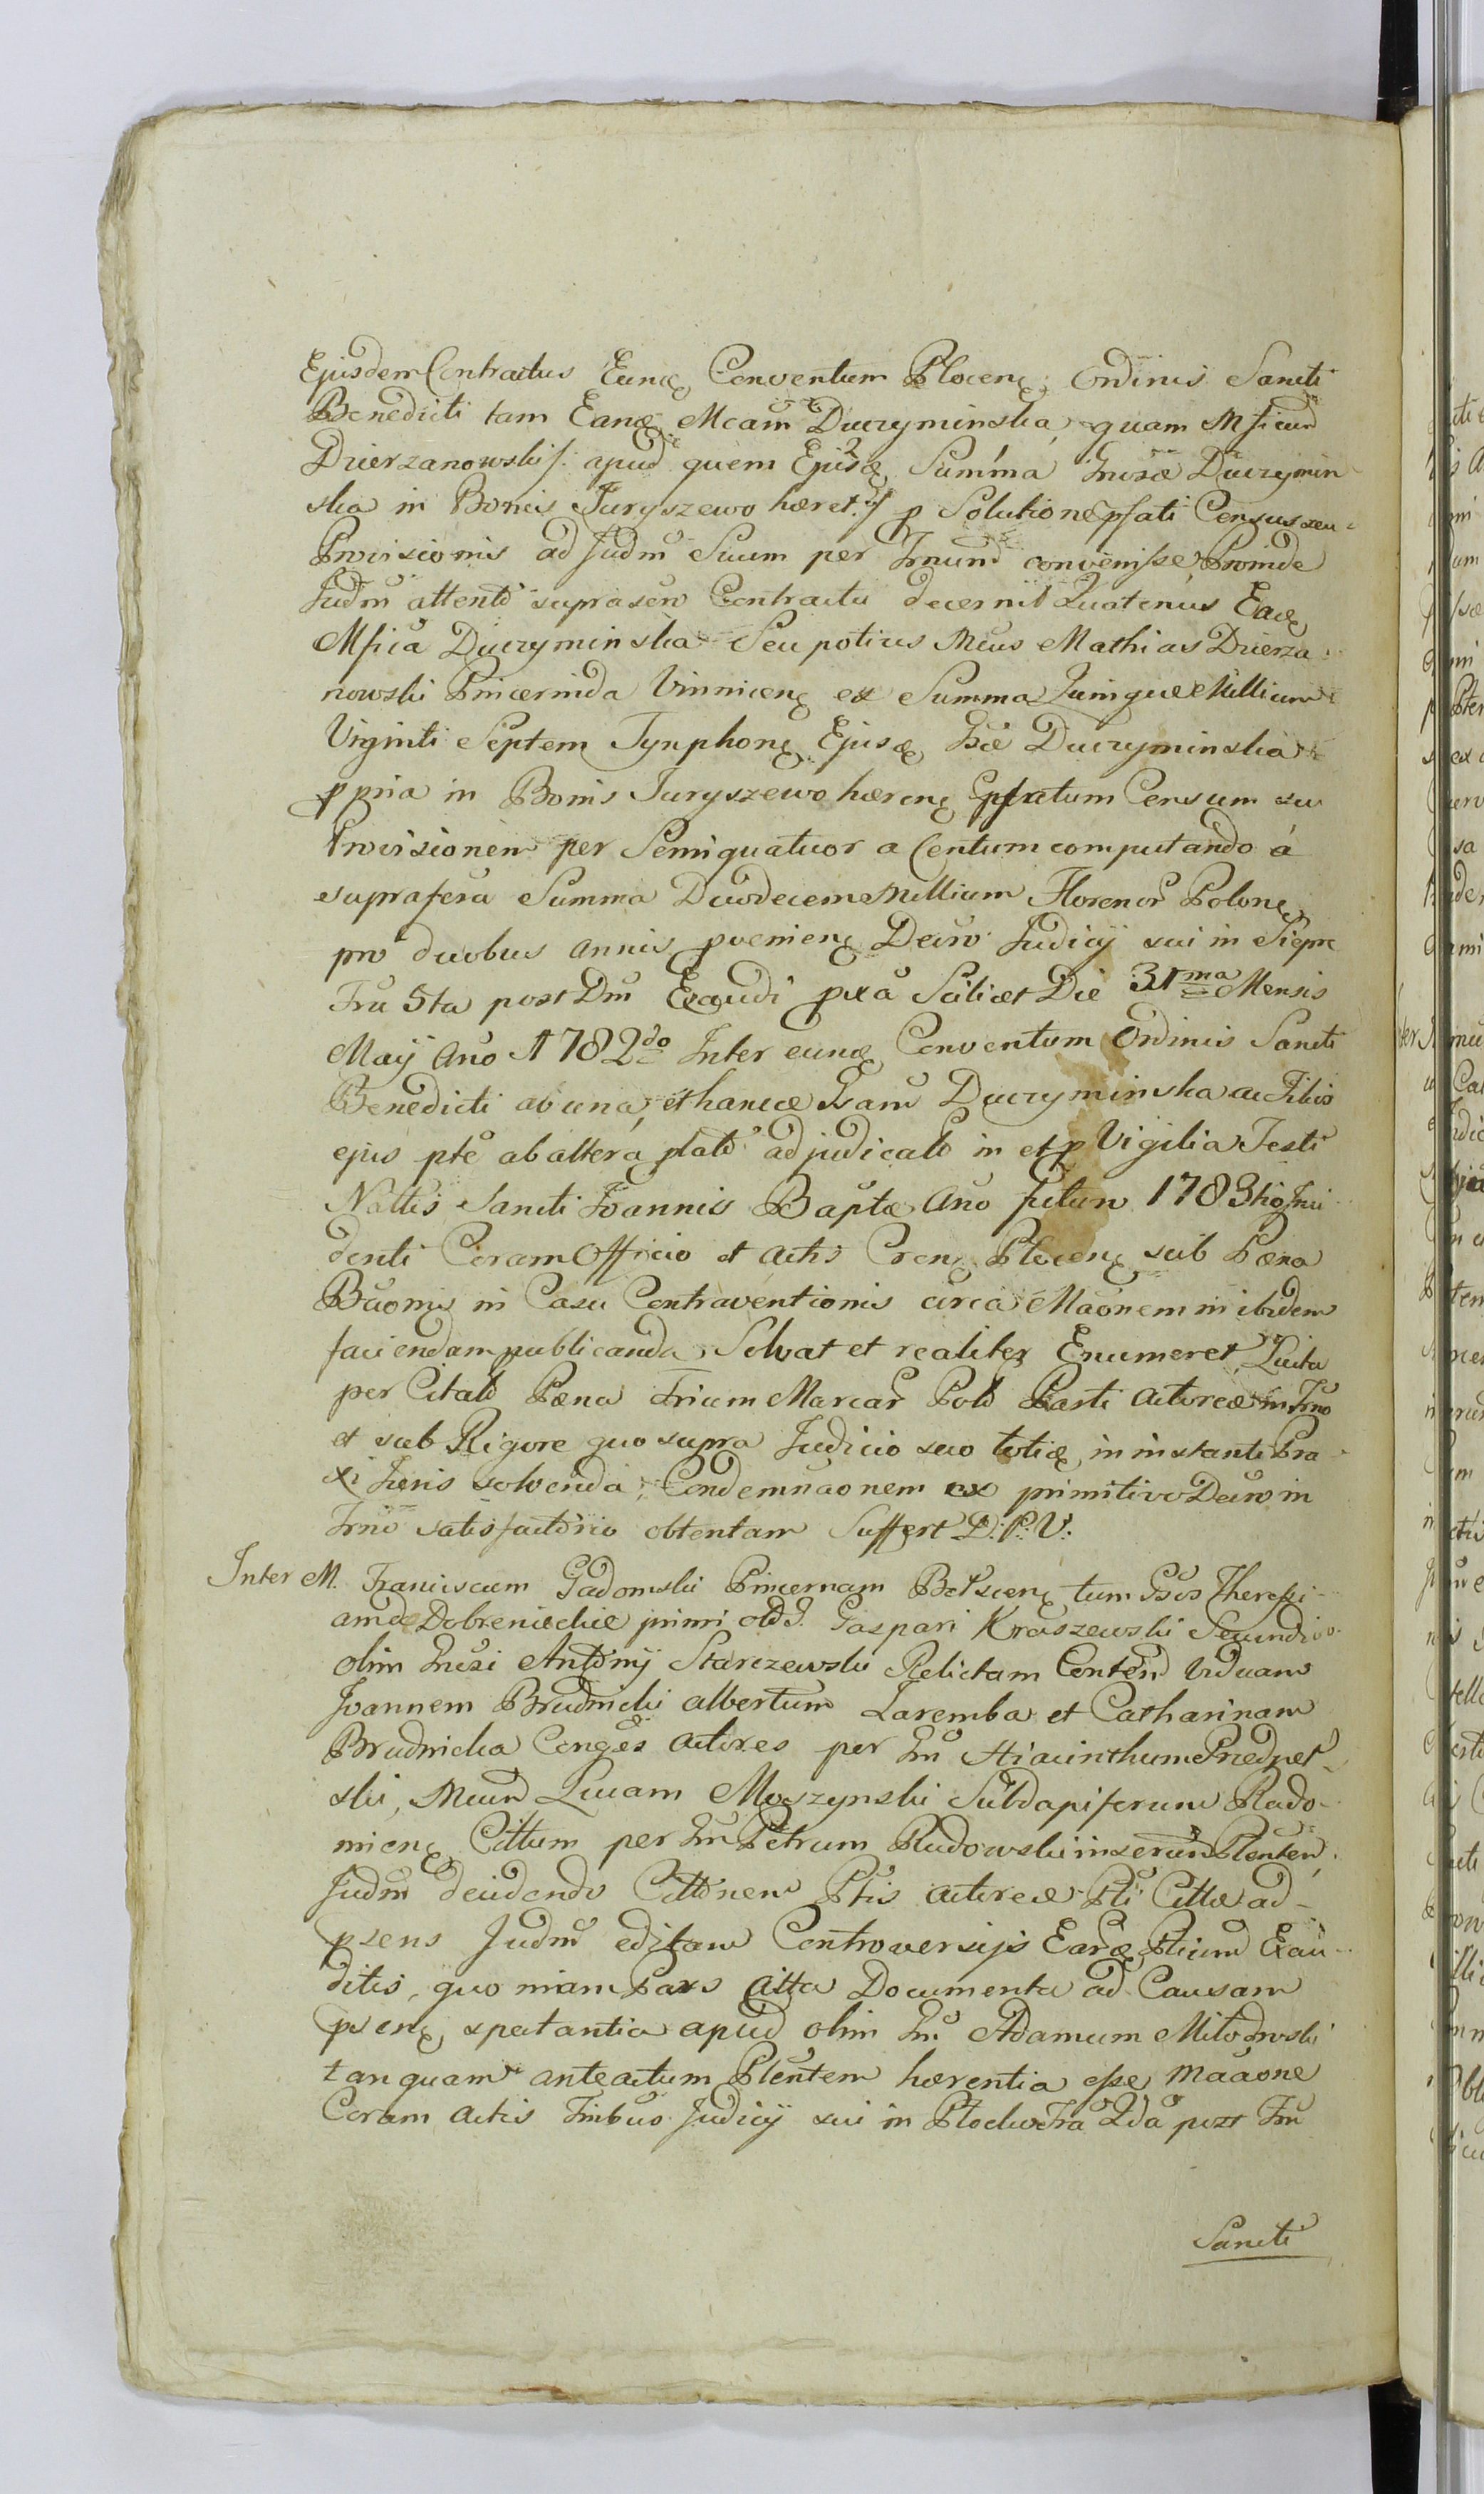 Ejusdem Contractus Eundę Conventum Plocenę Ordinis Sancti
Benedicti tam Eandę Mcam Duczyminska, quam Mficum
Dzierzanowski /: apud quem Ejusdę Summa Gnosæ Duczymin
ska in Bonis Juryszewo hæret :/ p Solutione pfati Census seu
Provisionis ad Judm Suum per Trnum convenisse, Proinde
Judm attento suprascro Contractu decernit Quatenus Eadę
Mfica Duczyminska Seu potius Mcus Mathias Dzierza-
nowski Pincernida Vinnicenę ex Summa Quinque Millium
Viginti Septem Tynphonę Ejusdę Gsæ Duczyminska
ppria in Bonis Juryszewo hærenę pfatum Censum seu
Provisionem per Semiquatuor a Centum computando á
suprafera Summa Duodecem Millium Florenor Polonę
pro duobus annis pvenienę Decro Judicij sui in Siepre
Fra 5ta post Dm Exaudi pxa Scilicet Die 31ma Mensis
Maij Ano 1782do Inter eundę Conventum Ordinis Sancti
Benedicti ab una, et hancce Gsam Duczyminska ac Filio
ejus pte ab altera, plato adjudicato in et p Vigilia Festi
Nattis Sancti Joannis Baptæ Ano futuro 1783tio Inci
denti Coram Officio et Actis Crenę Plocenę sub Pæna
Bãonis in Casu Contraventionis circa Mãonem in ibidem
faciendam publicanda Solvat et realiter Enumeret, Lucta
per Citato Pæna Trium Marcar Pold Parti Actoreæ in Trno
et sub Rigore quo supra Judicio suo totidę, in instanti Pra-
xi Juris solvenda; Condemnãonem ex primitivo Decro in
Trno satisfactorio obtentam Suffert D: P: V:
Inter M. Franciscum Gadomski Pincernam Belscenę tum Gsos Theresi-
am de Dobrenieckie primi olo G. Gaspari Kraszewski Secundi vo
olim Gnosi Antonij Starczewski Relictam Contend Viduam
Joannem Brudnicki Albertum Zaremba et Catharinam
Brudnicka Conges Actores per Gm Hiacinthum Przedpel-
ski, Mcum Lucam Moszynski Subdapiferum Rado-
mienę Cittum per Gm Petrum Rudowski inserum Plenten.
Judm decidendo Cittonem Ptis Actoreæ Pti Cittæ ad-
psens Judm editam Controversijs Eardę Ptium Exau-
ditis, quo niam Pars Citta Documenta ad Causam
psenę spectantia apud olim Gm Adamum Milodroski
tanquam anteactum Plentem hærentia esse Mãaone
Coram Actis Tinbus Judicij sui in Plocko Fra 2da post Fm
Sancti